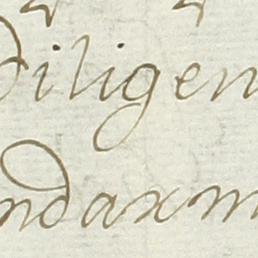 Diligen
ndaxm